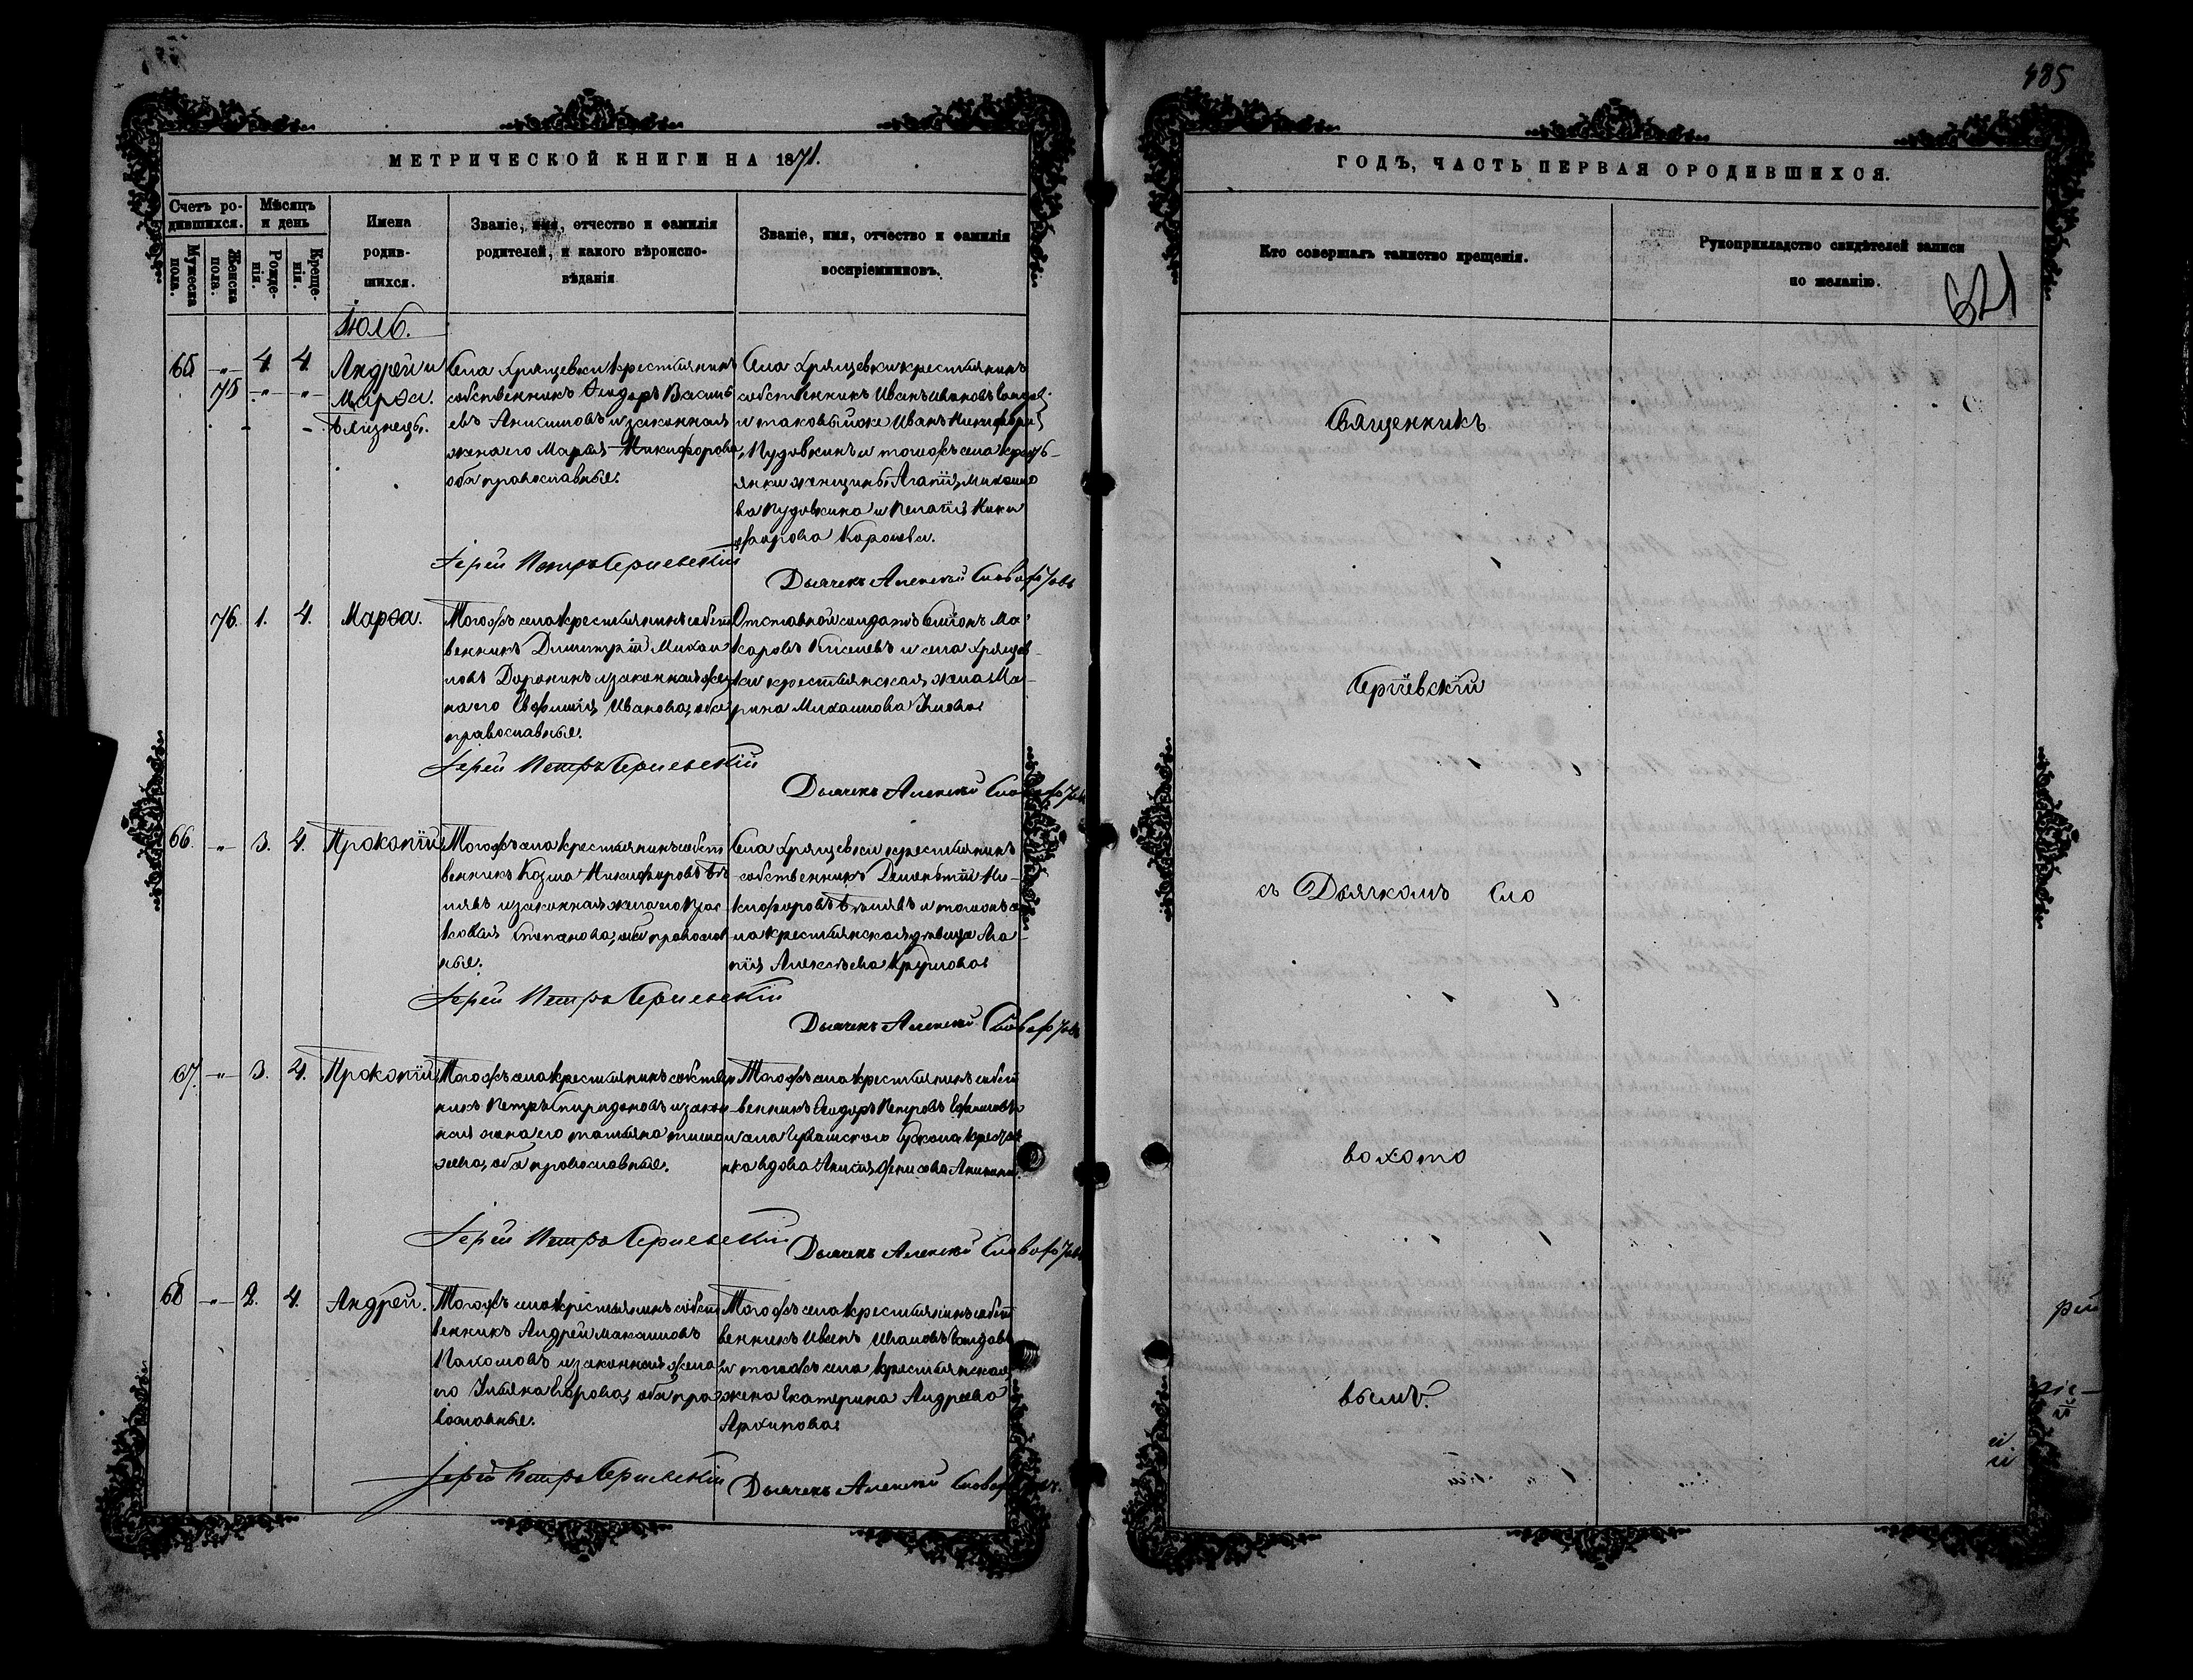 485
МЕТРИЧЕСКОЙ КНИГИ НА 1871.
Счетъ ро-
дившихся.
Мѣсяцъ
и день
Мужеска
пола.
Женска
пола.
Рожде-
нія.
Креще-
нія.
Имена
родив-
шихся.
Званіе, имя, отчество и фамилія
родителей, и какого вѣроиспо-
вѣданія
Званіе, имя, отчество и фамилія
воспріемниковъ.
Іюль.
65 -"- 4. 4.
75 -"- -"-
Андрей и
Марѳа.
близнецы.
Села Хрящевки крестьянинъ
собственникъ Ѳеодоръ Василь
евъ Анисимовъ и законная
жена его Марья Никифорова,
оба православные.
Села Хрящевки крестьянинъ
собственникъ Иванъ Ивановъ
и таковый же Иванъ Никифоро
Пудовкинъ и тогожъ села кресть-
янки женщины Агапія Михайло
ва Пудовкина и Пелагія Ники
форова Королева.
Іерей Петръ Сергіевскій
Дьячекъ Алексѣй Словохотовъ
76. 1. 4. Марѳа.
Тогожъ села крестьянинъ собст
венникъ Димитрій Михаи
ловъ Доронинъ и законная же
на его Евфимія Иванова, оба
православные.
Отставной солдатъ Симонъ Ма
каровъ Киселевъ и села Хрящев-
ки крестьянская жена Ма-
рина Михаилова
Іерей Петръ Сергіевскій
Дьячекъ Алексѣй Словохотовъ
66. -"- 3. 4. Прокопій
Тогожъ села крестьянинъ собст
венникъ Козма Никифоровъ Бѣ
ляевъ и законная жена его Прас
ковья Степанова, оба православ
ные.
Села Хрящевки крестьянинъ
собственникъ Дементій Ни-
кифоровъ Бѣляевъ и тогожъ се
ла крестьянская дѣвица Ага
пія Алексѣева Круглова
Іерей Петръ Сергіевскій
Дьячекъ Алексѣй Словохотовъ
67. -"- 3. 4. Прокопій
Тогожъ села крестьянинъ собствен
никъ Петръ Спиридоновъ и закон
ная жена его Татьяна Тимо
ѳеева, оба православные.
Тогожъ села крестьянинъ собст
венникъ Ѳеодоръ Петровъ Ефимовъ
и села Чувашскаго Сускана крестья
нка вдова Анисія Ѳенисова Аникина.
Іерей Петръ Сергіевскій
Дьячекъ Алексѣй Словохотовъ
68 -"- 2. 4. Андрей.
Тогожъ села крестьянинъ собст
венникъ Андрей Максимовъ
Пахомовъ и законная жена
его Ульяна Егорова, оба пра
вославные.
Тогожъ села крестьянинъ собст
венникъ Иванъ Ивановъ
и тогожъ села крестьянская
жена Екатерина Андреева
Архипова
Іерей Петръ Сергіевскій
Дьячекъ Алексѣй Словохотовъ.
ГОДЪ, ЧАСТЬ ПЕРВАЯ О РОДИВШИХСЯ.
Кто совершалъ таинство крещенія.
Рукоприкладство свидѣтелей записи
по желанію.
Священникъ
Сергіевскій
съ Дьячкомъ Сло
вохото
вымъ.